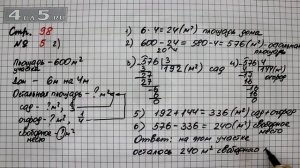 4АБ5.NET
Стр. 98
№ 5 г)
Площадь - 600 м²
участка
Дом - 6м на 4м
Остальная площадь - ? м²
сад - ? м²,
огород - ? м²,
свободное - ? м²
место
1) 6·4=24(м²) площадь дома
2) 600-24=580-4=576(м²) остальная
20 4
площадь
3) 576 3
192 (м²) сад
4) 576 4
144 (м²)
огород
5) 192+144=336(м²) сад+огород
6) 576-336=240(м²) свободное
место
Ответ: на этом участке
осталось 240 м² свободного